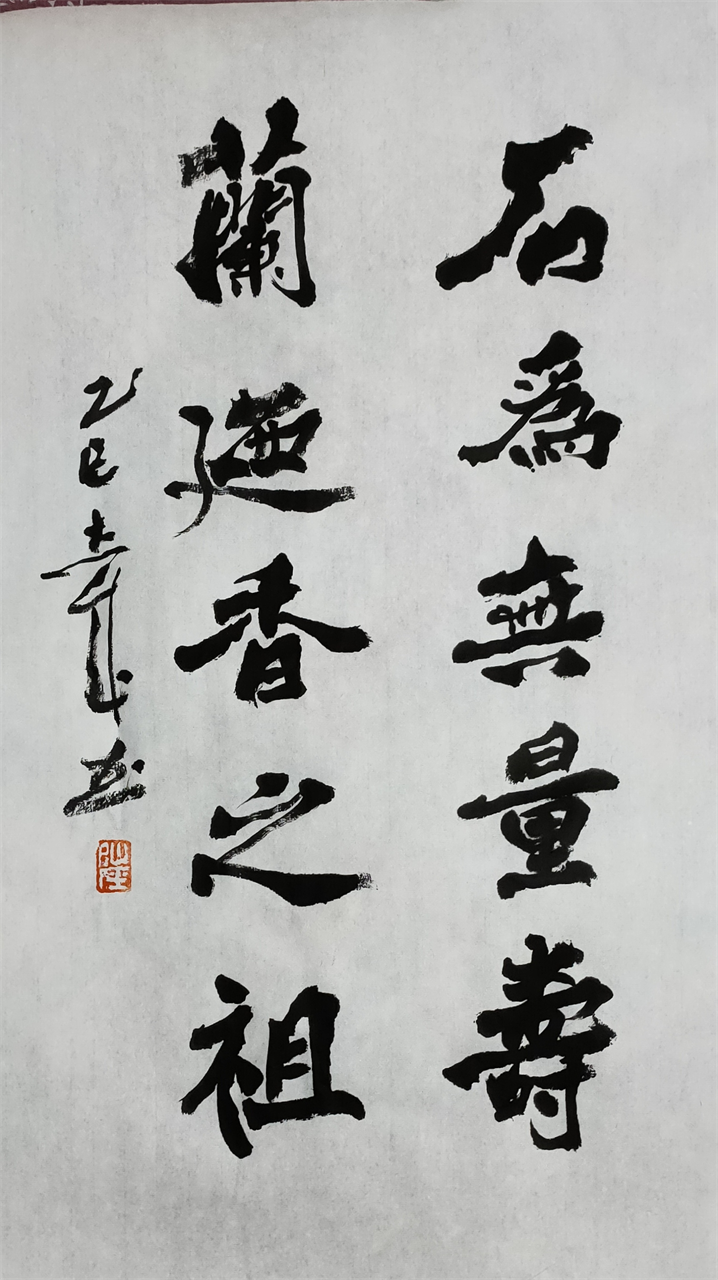 石爲無量壽
蘭廼香之祖
乙巳